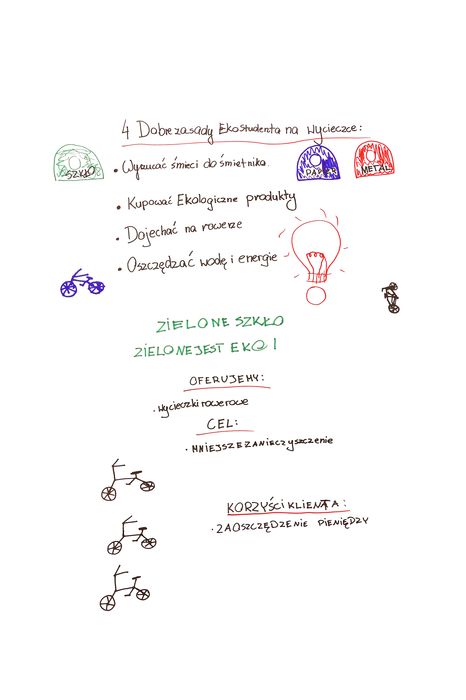 4 Dobre zasady Ekostudenta na wycieczce:
SZKŁO
• Wyrzucać śmieci do śmietnika.
PAPIER
METAL
• Kupować Ekologiczne produkty
• Dojechać na rowerze
• Oszczędzać wodę i energie
ZIELONE SZKŁO
ZIELONE JEST EKO!
OFERUJEMY:
• wycieczki rowerowe
CEL:
• MNIEJSZE ZANIECZYSZCZENIE
KORZYŚCI KLIENTA:
• ZAOSZCZĘDZENIE PIENIĘDZY